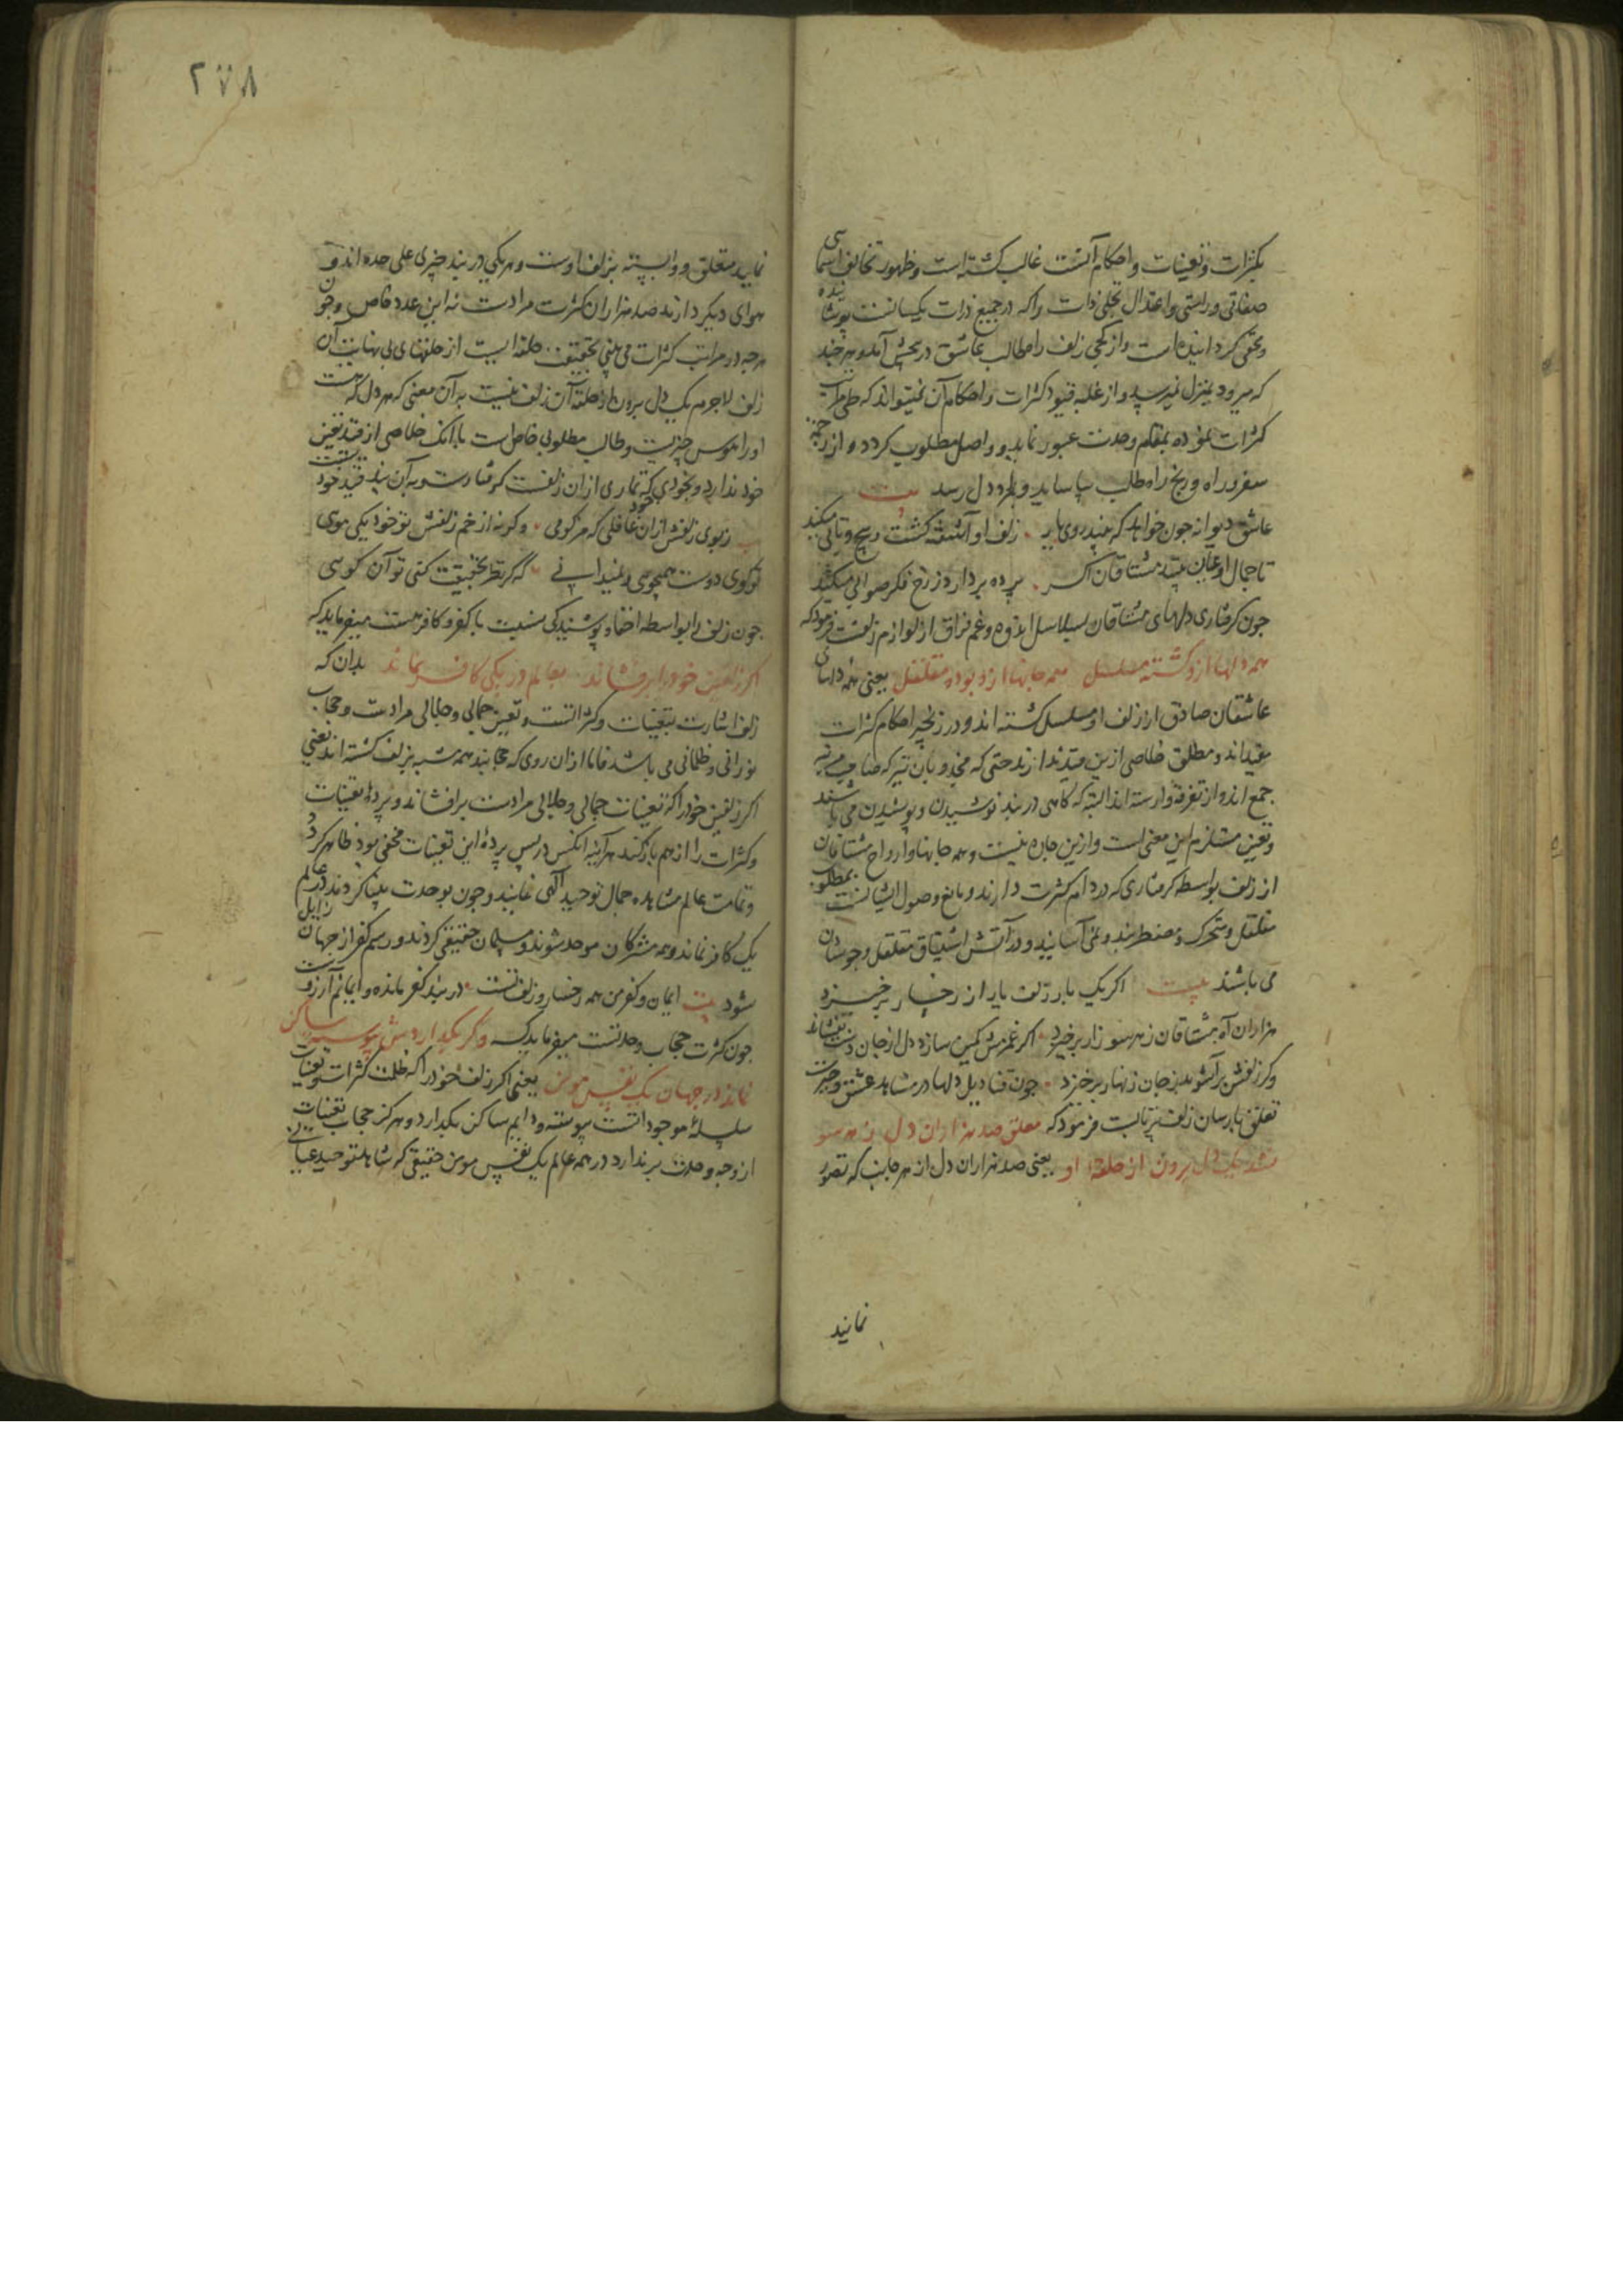 بکثرات و تعینات و احکام آنست غالب کشته است و ظهور تخالف اسمای
صفاتی و راستی و اعتدال تجلی ذات را که در جمیع ذرات یکسانست پوشانیده
و مخفی کردانیده است و از کجی زلف راه طالب عاشق در پیش آمد و هر چند
که میرود بمنزل نمیرسد و از غلبه قیود کثرات و احکام آن نمیتواند که طی مراتب
کثرات نموده بمقام وحدت عبور نماید و واصل مطلوب کردد و از زحمت
سفر و راه و رنج راه طلب بیاساید و بمراد دل رسد بیت
عاشق دیوانه چون خواهد که بیند روی یار زلف او آشفته کشت و پیچ و تابی میکند
تا جمال او عیان بیند مشتاقان اکر پرده بردارد ز رخ فکر صوابی میکند
چون کرفتاری دلهای مشتاقان بسلاسل اندوه و غم فراق از لوازم زلفست فرمود که
همه دلها ازو کشته مسلسل همه جانها ازو بوده مقلقل یعنی همه دلهای
عاشقان صادق از زلف او مسلسل کشته اند و در زنجیر احکام کثرات
مقیداند و مطلق خلاصی ازین قید ندارند حتی که مجذوبان نیز که صاحب مرتبه
جمع اند و از تفرقه وارسته اند البته کاهی در بند نوشیدن و پوشیدن می باشند
و تعین مستلزم این معنی است و ازین چاره نیست و همه جانها و ارواح مشتاقان
از زلف بواسطه کرفتاری که در دام کثرت دارند و مانع وصول ایشانست بمطلوب
مقلقل و متحرک و مضطربند و نمی آسایند و در آتش اشتیاق مقلقل و جوشان
می باشند بیت اکر یک بار زلف یار از رخسار برخیزد
هزاران آه مشتاقان ز هر سو زار برخیزد اکر غمزش کمین سازد دل از جان دست بفشاند
وکر زلفش برآشوبد ز جان زنهار برخیزد چون قنادیل دلها در مشاهد عشق و حیرت
تعلق بارسان زلف پرتابست فرمود که معلق صد هزاران دل ز هر سو
نشد یک دل برون از حلقه او یعنی صد هزاران دل از هر جانب که تصور
نمایند
۲۷۸
نمایند متعلق و وابسته بزلف اوست و هر یکی در بند چیزی علی حده اند و
هوای دیکر دارند صد هزاران کثرت مرادست نه این عدد خاص وجون
هرچه در مراتب کثرات می بینی بحقیقت حلقه ایست از حلقهای بی نهایت آن
زلف لاجرم یک دل برون از حلقه آن زلف نیست به آن معنی که هر دل که هست
او را هوس چیزیست و طالب مطلوبی خاص است با آنک خلاصی از قید تعین
خود ندارد و بخودی که تاری از آن زلفست کرفتارست و به آن بند قید خود
ز بوی زلفش از آن غافلی که مزکومی وکرنه از خم زلفش تو خود یکی موی
تو کوی دوست همچوی و نمیدانی که کر نظر بحقیقت کنی تو آن کوی
چون زلف را بواسطه اخفا و پوشیدکی نسبت با کفر و کافر هست میفرماید که
اکر زلفین خود را برفشاند بعالم در یکی کافر نماند بدان که
زلف اشارت بتعینات و کثراتست و تعین جمالی و جلالی مرادست و حجاب
نورانی و ظلمانی می باشد فاما از آن روی که حجابند همه شبیه بزلف کشته اند یعنی
اکر زلفین خود را که تعینات جمالی و جلالی مرادست برافشاند و پرده تعینات
و کثرات را از هم باز کند هر آینه آنکس در پس پرده این تعینات مخفی بود ظاهر کردد
و تمامت عالم مشاهده جمال توحید الهی نمایند و چون بوحدت بینا کردند در عالم
یک کافر نماند و همه مشرکان موحد شوند و مسلمان حقیقی کردند و رسم کفر از جهان زایل
شود بیت ایمان و کفر من همه رخسار و زلف تست در بند کفر مانده و ایمانم آرزوست
چون کثرت حجاب وحدتست میفرماید که وکر بکذاردش پیوسته ساکن
نماند در جهان یک نفس مومن یعنی اکر زلف خود را که ظلمت کثرات و تعینات
سلسله موجوداتست پیوسته و دایم ساکن بکذارد و هرکز حجاب تعینات
از وجه وحدت برندارد در همه عالم یک نفس مومن حقیقی که مشاهد توحید عیانی